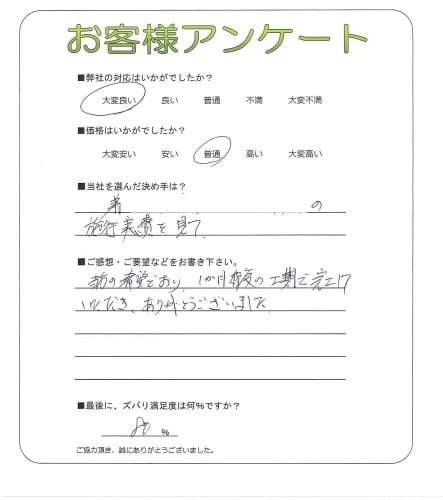 お客様アンケート
■弊社の対応はいかがでしたか?
大変良い 良い 普通 不満 大変不満
■価格はいかがでしたか?
大変安い 安い 普通 高い 大変高い
■当社を選んだ決め手は?
の
施行実費を見て
■ご感想・ご要望などをお書き下さい。
の希望どおり、1か月程度の工期で完工
いただき、ありがとうございました
■最後に、ズバリ満足度は何%ですか?
%
ご協力頂き、誠にありがとうございました。